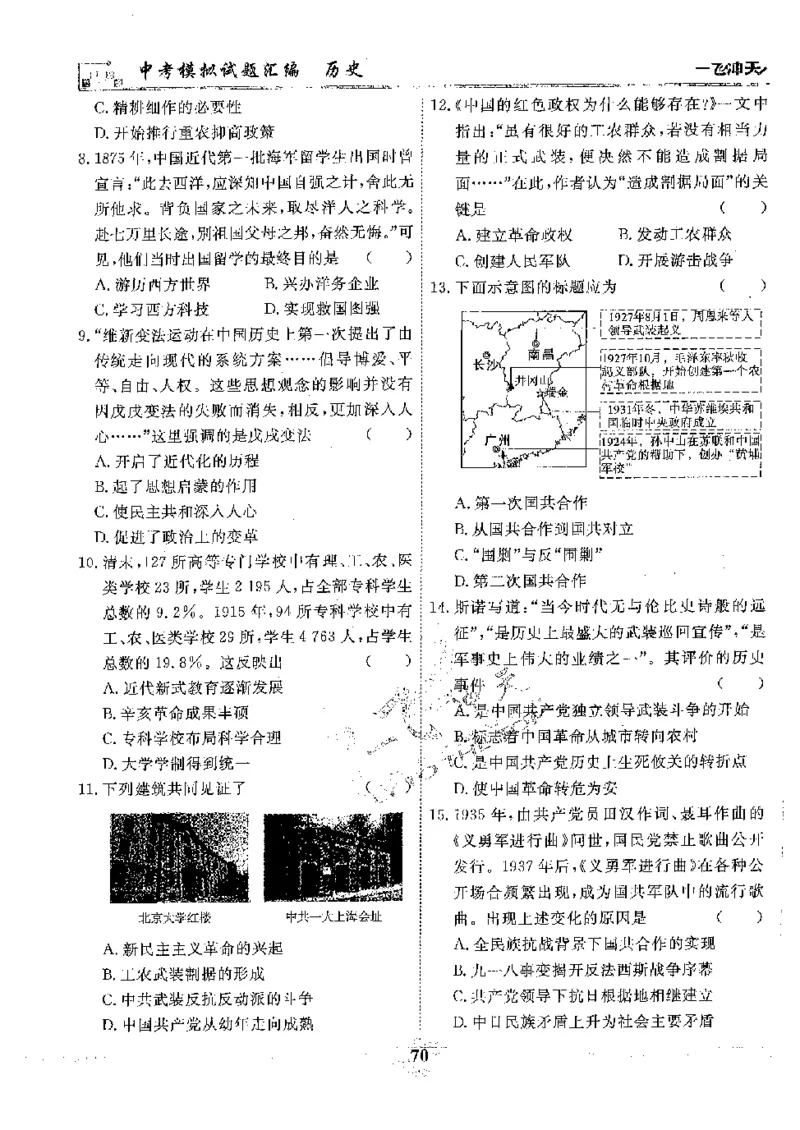 中考模拟试题汇编 历史
一飞冲天
C.精耕细作的必要性
D.开始推行重农抑商政策
8.1875年,中国近代第一批海军留学生出国时曾
宣言:“此去西洋,应深知中国自强之计,舍此无
所他求。背负国家之未来,取尽洋人之科学。
赴七万里长途,别祖国父母之邦,奋然无悔。”可
见,他们当时出国留学的最终目的是 ( )
A.游历西方世界 B.兴办洋务企业
C.学习西方科技 D.实现救国图强
9.“维新变法运动在中国历史上第一次提出了由
传统走向现代的系统方案……倡导博爱、平
等、自由、人权。这些思想观念的影响并没有
因戊戌变法的失败而消失,相反,更加深入人
心……”这里强调的是戊戌变法 ( )
A.开启了近代化的历程
B.起了思想启蒙的作用
C.使民主共和深入人心
D.促进了政治上的变革
10.清末,127所高等专门学校中有理、工、农、医
类学校23所,学生2 195人,占全部专科学生
总数的9.2%。1915年,94所专科学校中有
工、农、医类学校29所,学生4 763人,占学生
总数的19.8%。这反映出 ( )
A.近代新式教育逐渐发展
B.辛亥革命成果丰硕
C.专科学校布局科学合理
D.大学学制得到统一
11.下列建筑共同见证了 ( )
北京大学红楼 中共一大上海会址
A.新民主主义革命的兴起
B.工农武装割据的形成
C.中共武装反抗反动派的斗争
D.中国共产党从幼年走向成熟
12.《中国的红色政权为什么能够存在?》一文中
指出:“虽有很好的工农群众,若没有相当力
量的正式武装,便决然不能造成割据局
面……”在此,作者认为“造成割据局面”的关
键是 ( )
A.建立革命政权 B.发动工农群众
C.创建人民军队 D.开展游击战争
13.下面示意图的标题应为 ( )
1927年8月1日,周恩来等人
领导武装起义
南昌
长沙
井冈山
瑞金
广州
1927年10月,毛泽东率秋收
起义部队,开始创建第一个农
村革命根据地
1931年冬,中华苏维埃共和
国临时中央政府成立
1924年,孙中山在苏联和中国
共产党的帮助下,创办“黄埔
军校”
A.第一次国共合作
B.从国共合作到国共对立
C.“围剿”与反“围剿”
D.第二次国共合作
14.斯诺写道:“当今时代无与伦比史诗般的远
征”,“是历史上最盛大的武装巡回宣传”,“是
军事史上伟大的业绩之一”。其评价的历史
事件 ( )
A.是中国共产党独立领导武装斗争的开始
B.标志着中国革命从城市转向农村
C.是中国共产党历史上生死攸关的转折点
D.使中国革命转危为安
15.1935年,由共产党员田汉作词、聂耳作曲的
《义勇军进行曲》问世,国民党禁止歌曲公开
发行。1937年后,《义勇军进行曲》在各种公
开场合频繁出现,成为国共军队中的流行歌
曲。出现上述变化的原因是 ( )
A.全民族抗战背景下国共合作的实现
B.九一八事变揭开反法西斯战争序幕
C.共产党领导下抗日根据地相继建立
D.中日民族矛盾上升为社会主要矛盾
70